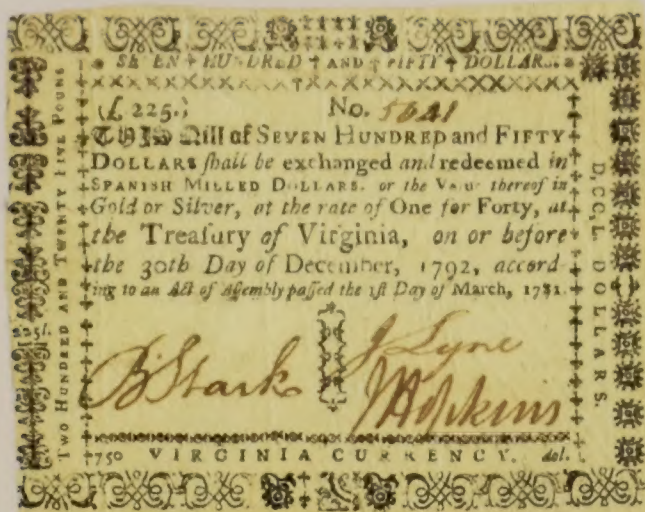 SEVEN HUNDRED AND FIFTY DOLLARS.
(£ 225.) No. 5041
THIS Bill of SEVEN HUNDRED and FIFTY
DOLLARS ſhall be exchanged and redeemed in
SPANISH MILLED DOLLARS, or the Value thereof in
Gold or Silver, at the rate of One for Forty, at
the Treaſury of Virginia, on or before
the 30th Day of December, 1792, accord-
ing to an Act of Aſſembly paſſed the 1ſt Day of March, 1781.
B Stark
J Lyne
J Hopkins
750 VIRGINIA CURRENCY. dol.
TWO HUNDRED AND TWENTY FIVE POUNDS
D,CC,L DOLLARS.